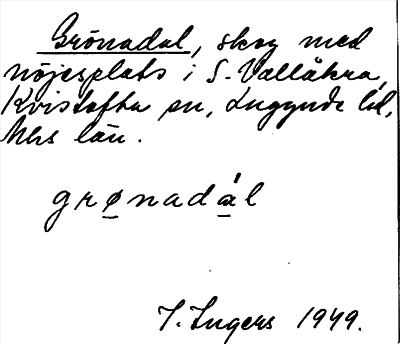 Grönadal, skog med
nöjesplats i S. Vallåkra,
Kvistofta sn, Luggude hd,
Mhs län.
grønadál
I. Ingers 1949.